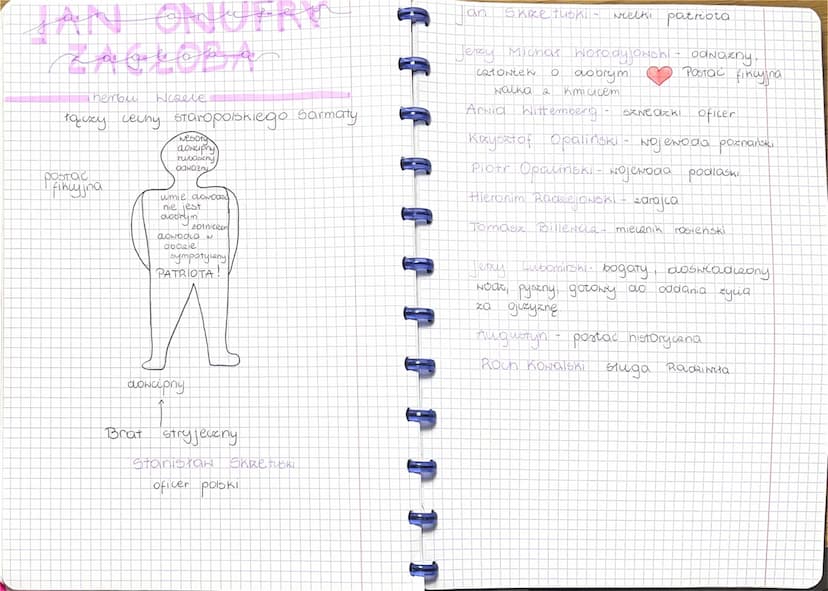 JAN ONUFRY
ZAGŁOBA
herbu Wczele
łączy cechy staropolskiego Sarmaty
wesoły
dowcipny
rubaszny
odważny
postać
fikcyjna
umie dowodzić
nie jest
dobrym
żołnierzem
dowódca w
obozie
sympatyczny
PATRIOTA!
dowcipny
Brat stryjeczny
Stanisław Skrzetuski
oficer polski
Jan Skrzetuski - wielki patriota
Jerzy Michał Wołodyjowski - odważny,
człowiek o dobrym ❤ Postać fikcyjna
walka z Kmicicem
Arwid Wittemberg - szwedzki oficer
Krzysztof Opaliński - wojewoda poznański
Piotr Opaliński - wojewoda podlaski
Hieronim Radziejowski - zdrajca
Tomasz Billewicz - miecznik rosieński
Jerzy Lubomirski - bogaty, doświadczony
wódz, pyszny, gotowy do oddania życia
za ojczyznę
Augustyn - postać historyczna
Roch Kowalski sługa Radziwiłła